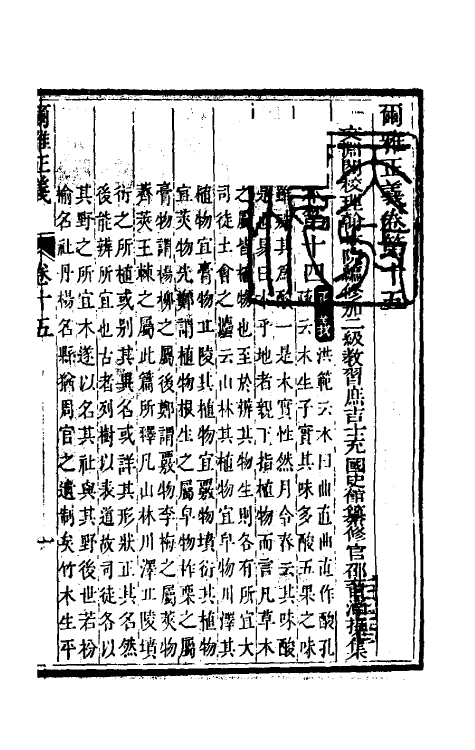 爾雅正義卷第十五
文淵閣校理翰林院編修加一級教習庶吉士充國史館纂修官邵晉涵撰集
釋木第十四 正義 洪範云木曰曲直曲直作酸孔
疏云木生子實其味多酸五果之味
雖殊其爲酸一是木實性然月令春云其味酸
是也易曰 乎地者觀下指植物而言凡草木
之屬皆植物也至於辨其物生則各有所宜大
司徒土會之灋云山林其植物宜早物川澤其
植物宜膏物丘陵其植物宜覈物墳衍其植物
宜莢物先鄭謂植物根生之屬皁物柞栗之屬
膏物謂楊柳之屬後鄭謂覈物李梅之屬莢物
薺莢王棘之屬此篇所釋凡山林川澤丘陵墳
衍之所植或别其異名或詳其形狀正其名然
後能辨所宜也古者列樹以表道故司徒各以
其野之所宜木遂以名其社與其野後世若枌
榆名社丹楊名縣猶周官之遺制矣竹木生平
爾雅正義 卷十五 一